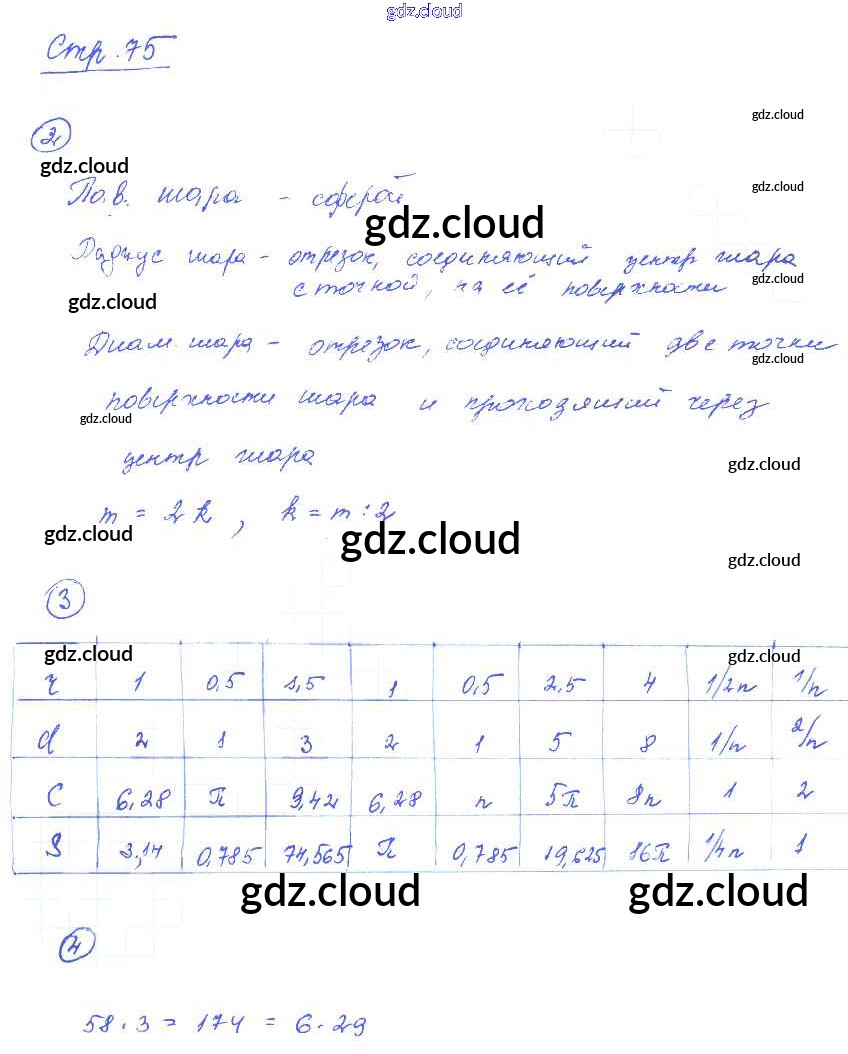 gdz.cloud
Стр. 75
gdz.cloud
2
gdz.cloud
gdz.cloud
Пов. шара - сферой
gdz.cloud
Радиус шара - отрезок, соединяющий центр шара
с точкой, на её поверхности
gdz.cloud
gdz.cloud
Диам. шара - отрезок, соединяющий две точки
gdz.cloud
поверхности шара и проходящий через
gdz.cloud
центр шара
gdz.cloud
m = 2k, k = m : 2
gdz.cloud
gdz.cloud
gdz.cloud
3
gdz.cloud
gdz.cloud
r 1 0,5 1,5 1 0,5 2,5 4 1/2п 1/п
d 2 1 3 2 1 5 8 1/п 2/п
C 6,28 π 9,42 6,28 п 5π 8п 1 2
S 3,14 0,785 74,565 π 0,785 19,625 16π 1/4п 1
gdz.cloud
gdz.cloud
4
58 · 3 = 174 = 6 · 29